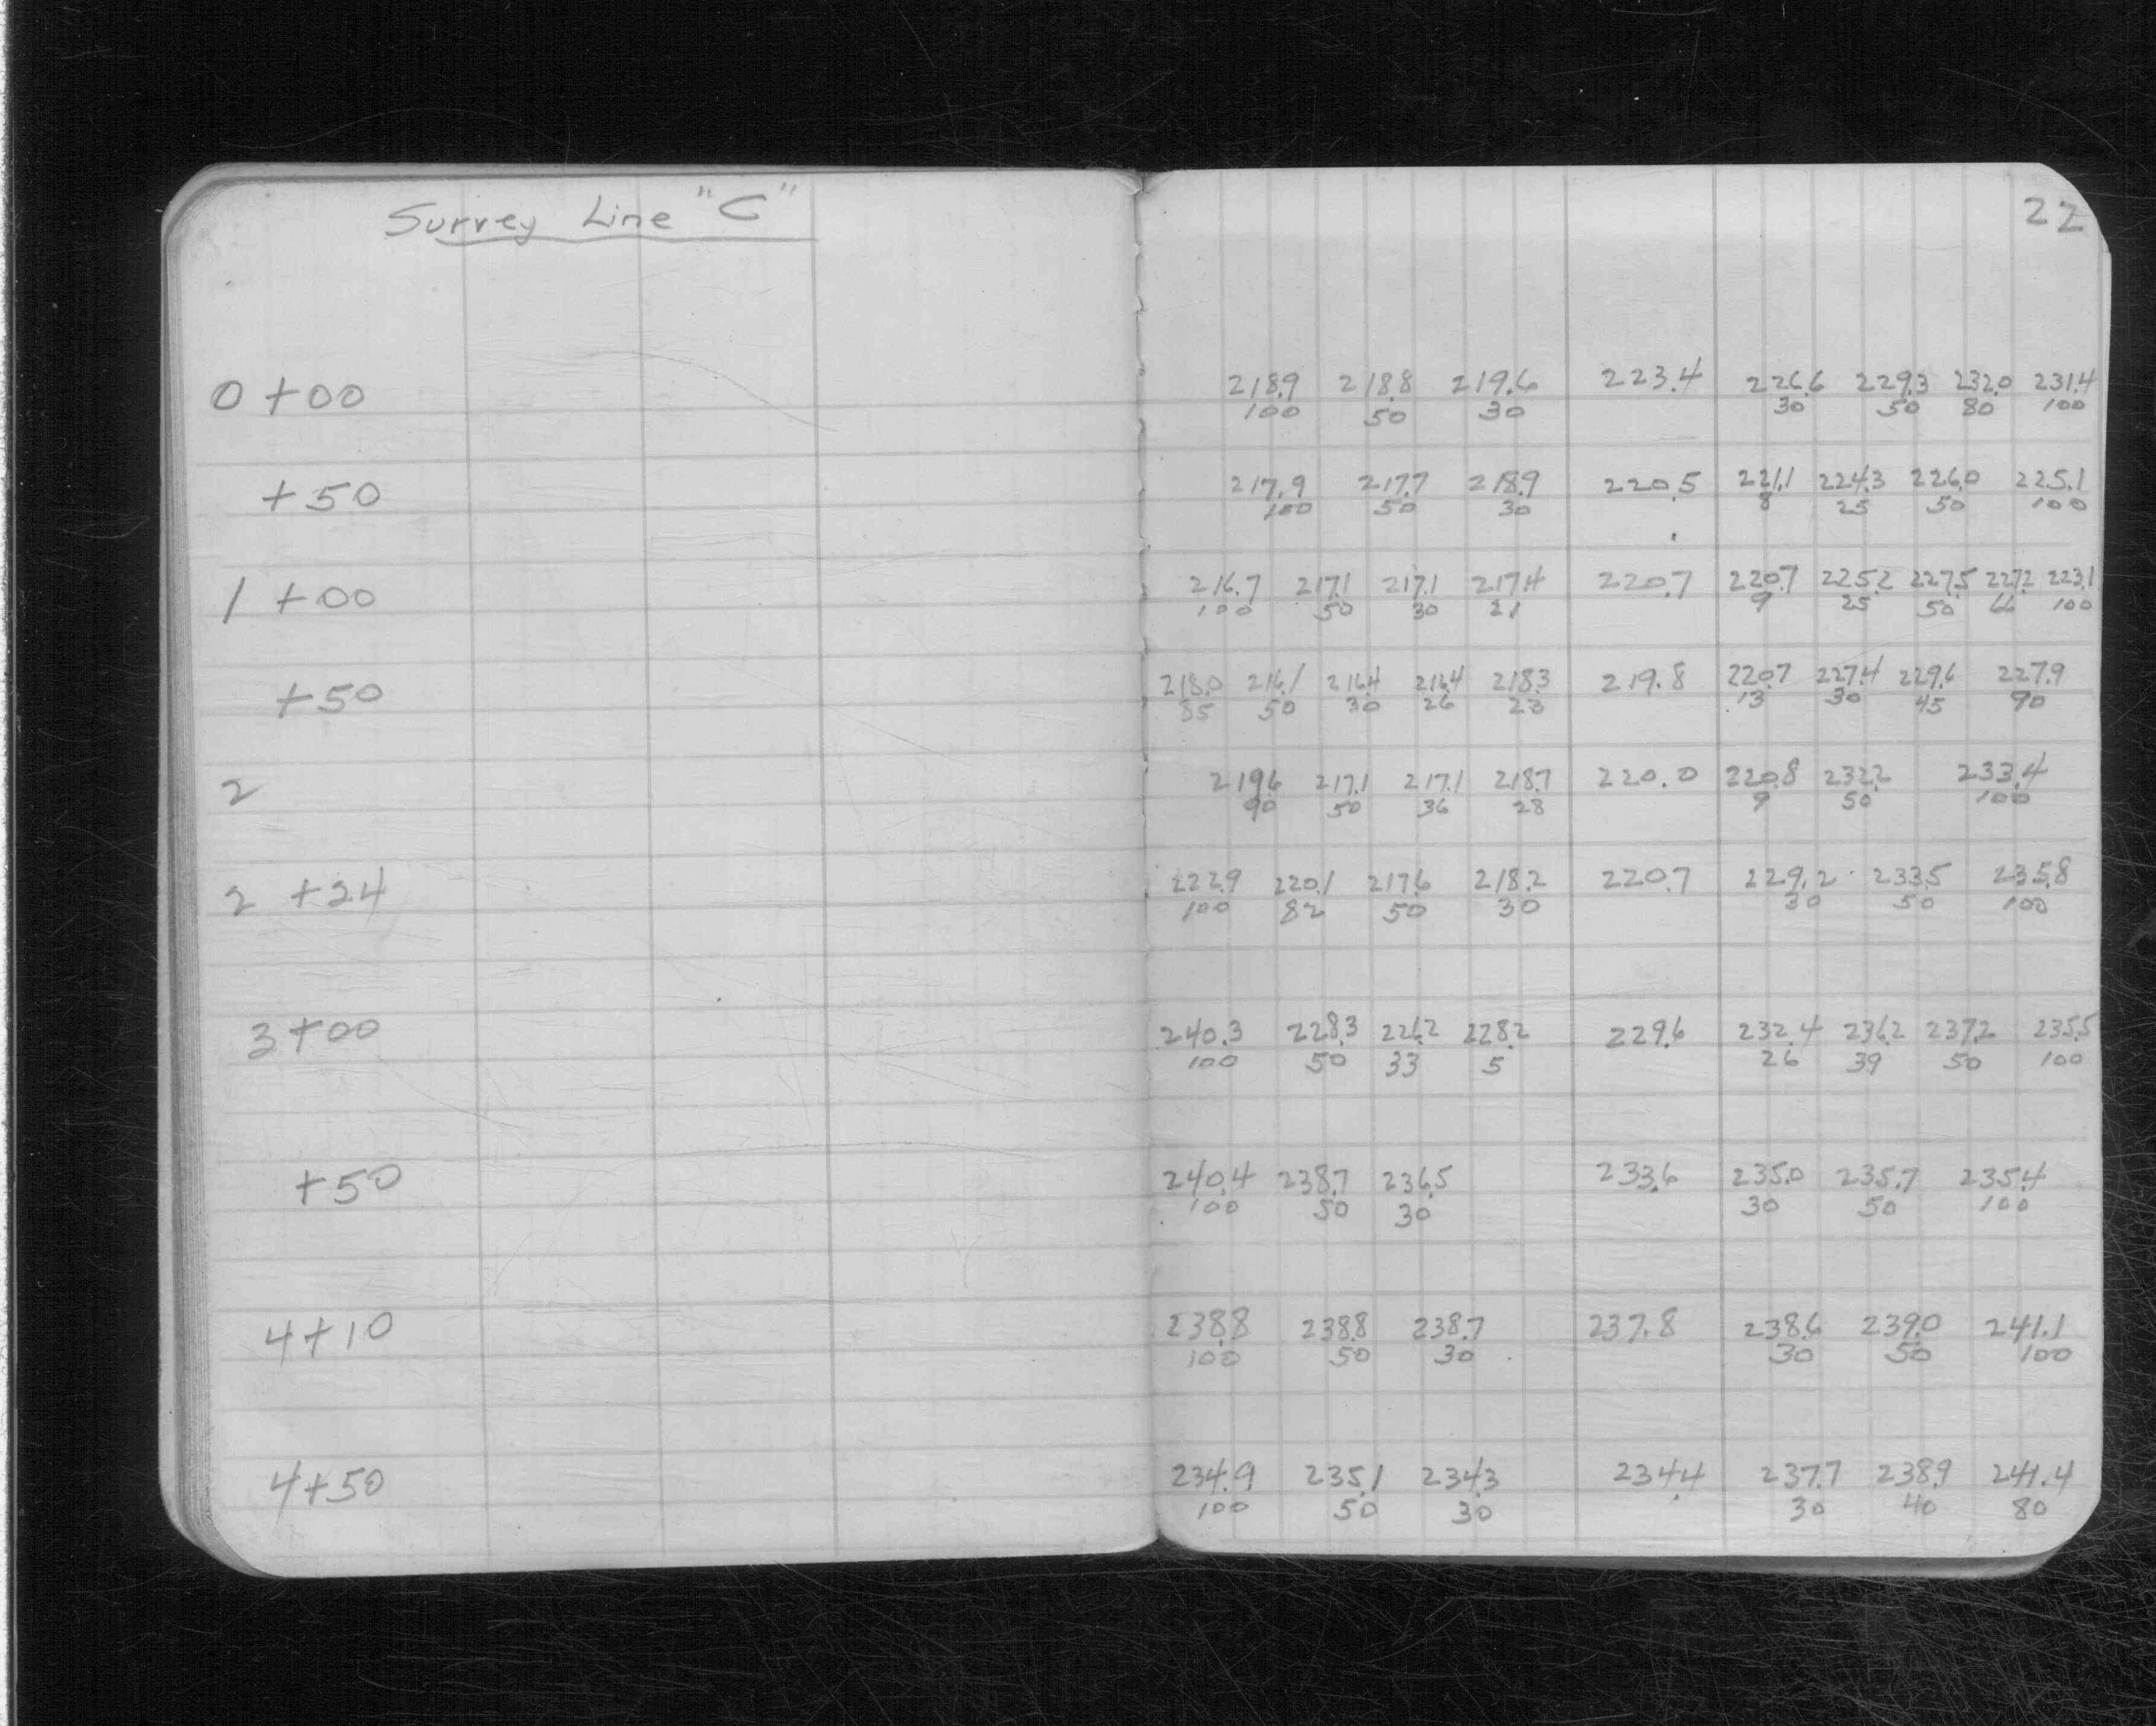 Survey Line "C"
22
0 +00 218.9 218.8 219.6 223.4 226.6 229.3 232.0 231.4
100 50 30 30 50 80 100
+50 217.9 217.7 218.9 220.5 221.1 224.3 226.0 225.1
100 50 30 8 25 50 100
1 +00 216.7 217.1 217.1 217.4 220.7 220.7 225.2 227.5 227.2 223.1
100 50 30 21 9 25 50 66 100
+50 218.0 216.1 216.4 216.4 218.3 219.8 220.7 227.4 229.6 227.9
50 30 26 23 13 30 45 90
2 219.6 217.1 217.1 218.7 220.0 220.8 232.2 233.4
90 50 36 28 9 50 100
2 +24 222.9 220.1 217.6 218.2 220.7 229.2 233.5 235.8
100 82 50 30 30 50 100
3+00 240.3 228.3 226.2 228.2 229.6 232.4 236.2 237.2 235.5
100 50 33 5 26 39 50 100
+50 240.4 238.7 236.5 233.6 235.0 235.7 235.4
100 50 30 30 50 100
4+10 238.8 238.8 238.7 237.8 238.6 239.0 241.1
100 50 30 30 50 100
4+50 234.9 235.1 234.3 234.4 237.7 238.9 241.4
100 50 30 30 40 80